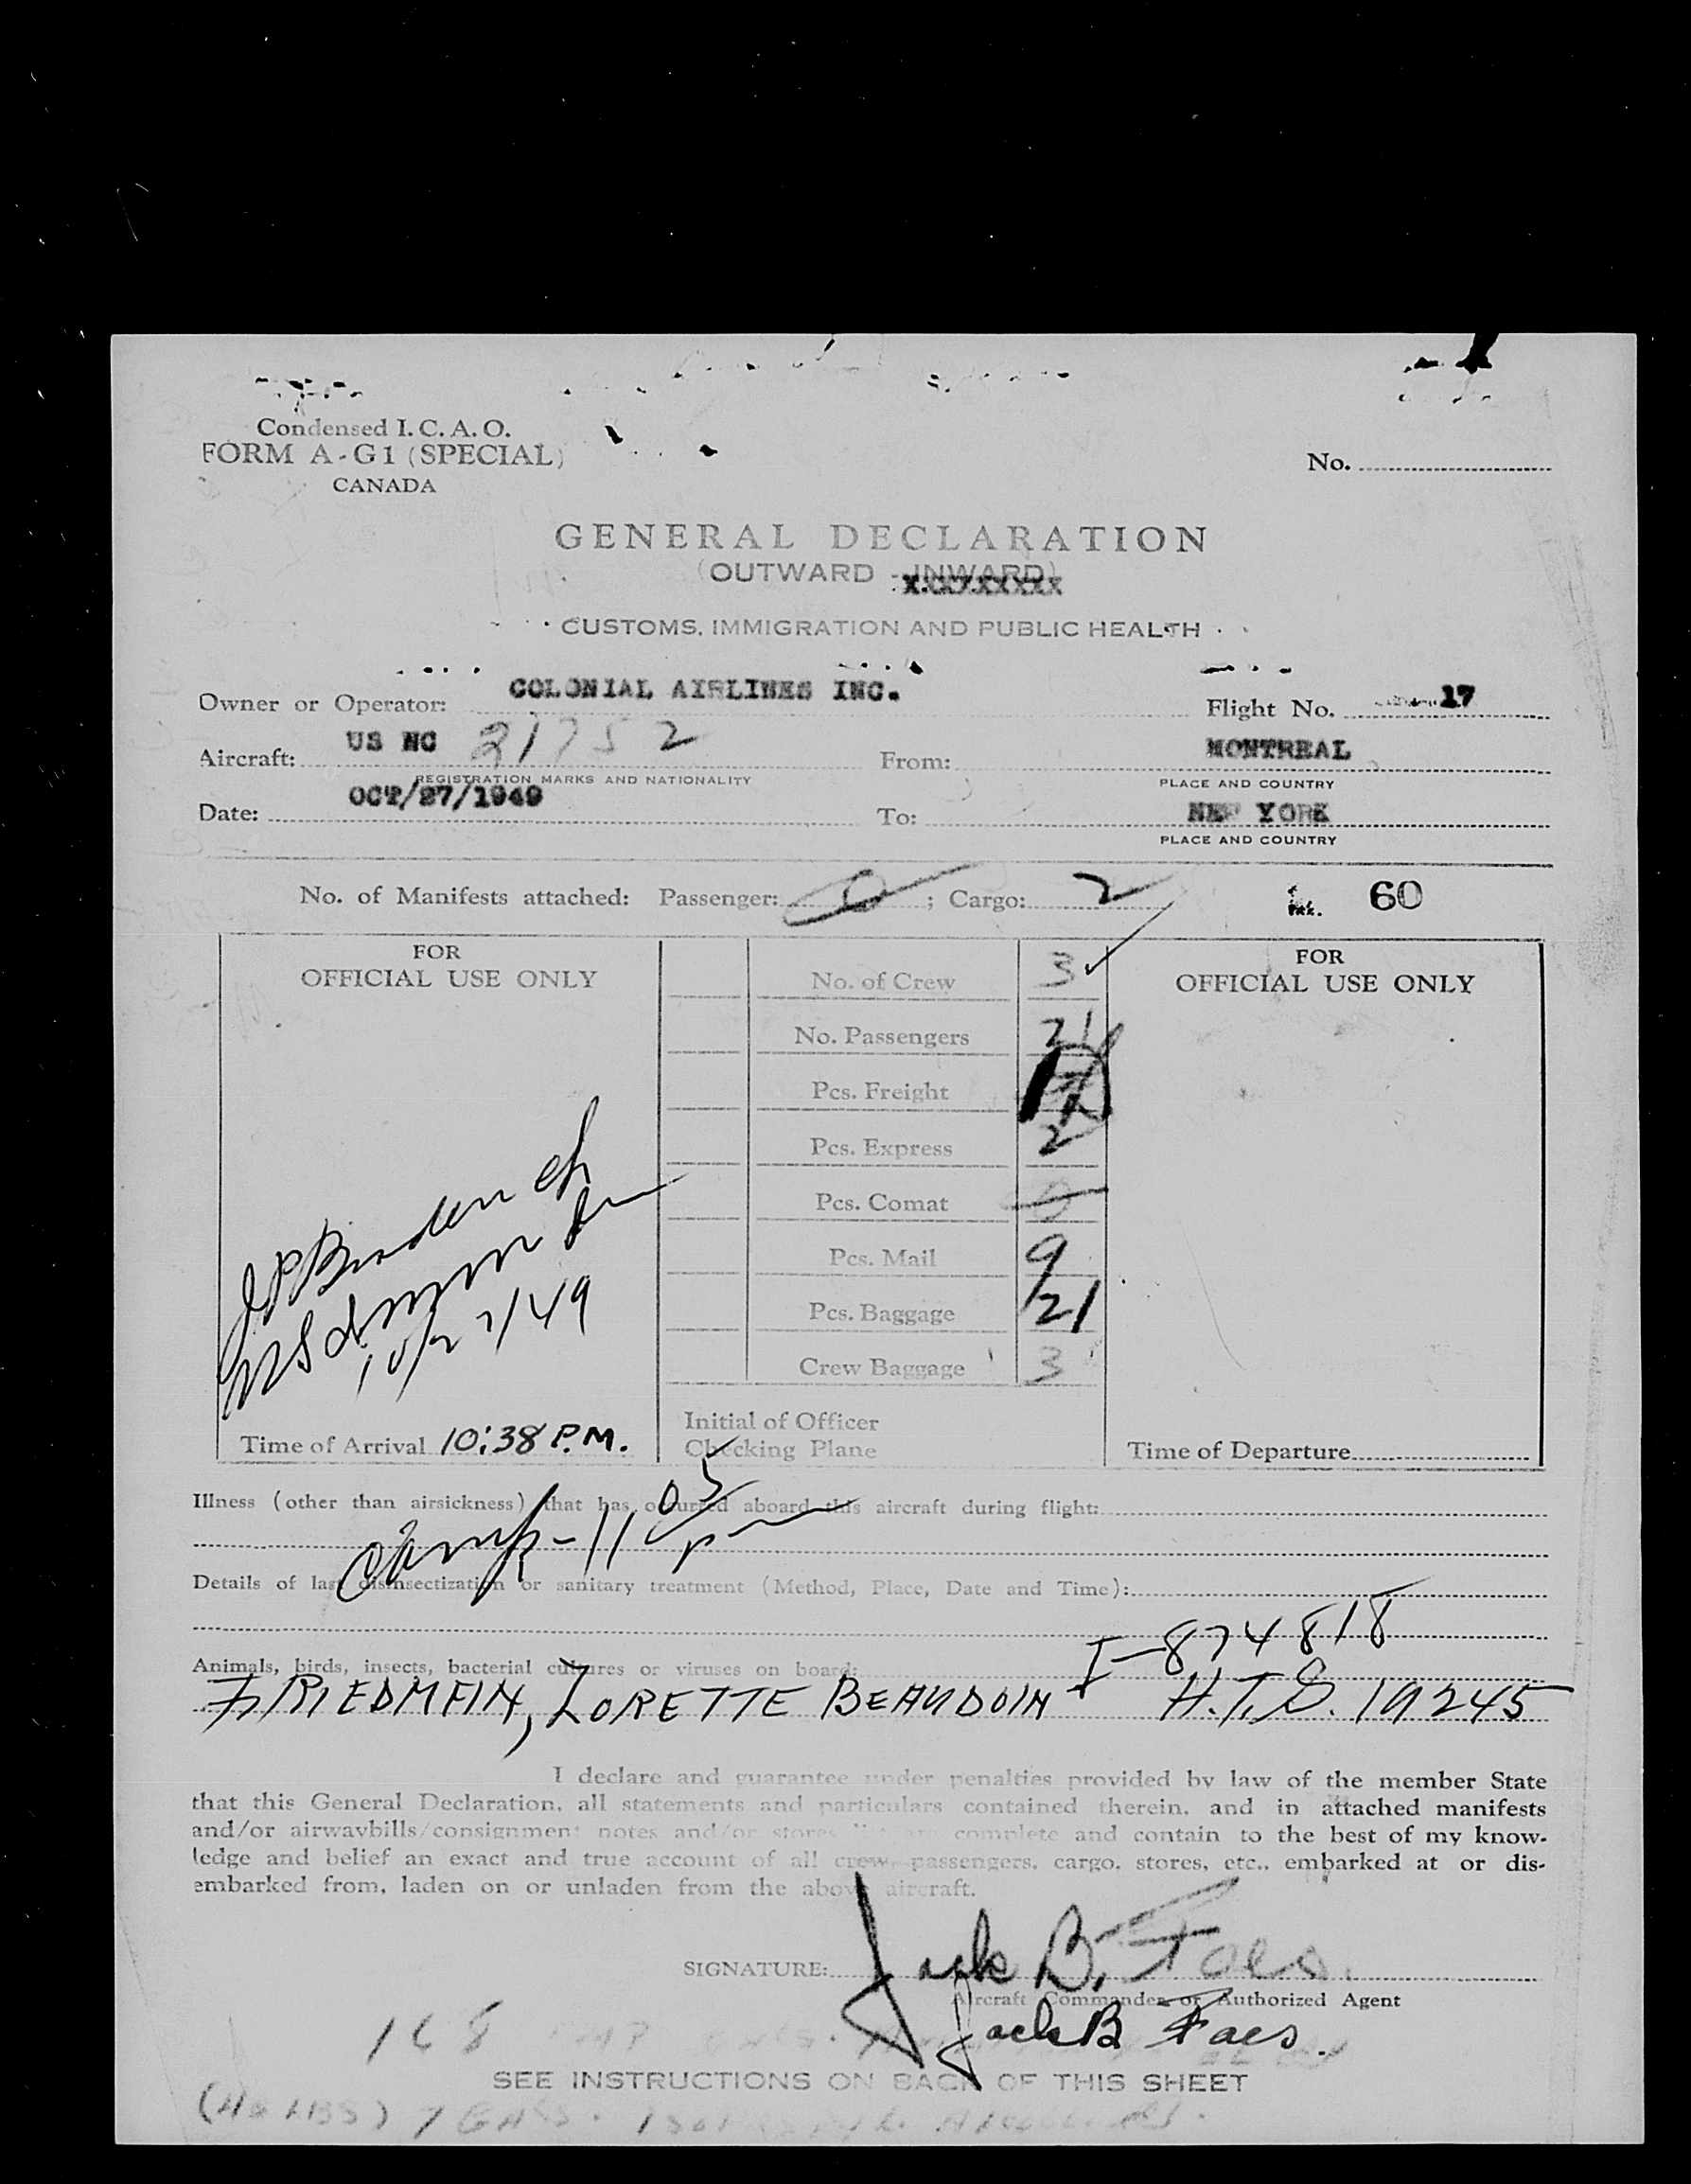 Condensed I. C. A. O.
FORM A-G1 (SPECIAL)
CANADA
No.
GENERAL DECLARATION
(OUTWARD - INWARD)
CUSTOMS, IMMIGRATION AND PUBLIC HEALTH
Owner or Operator: COLONIAL AIRLINES INC. Flight No. 17
Aircraft: US NC 21752 From: MONTREAL
REGISTRATION MARKS AND NATIONALITY PLACE AND COUNTRY
Date: OCT/27/1949 To: NEW YORK
PLACE AND COUNTRY
No. of Manifests attached: Passenger: 0 ; Cargo: 2 60
FOR
OFFICIAL USE ONLY
10/27/49
Time of Arrival 10:38 P.M.
No. of Crew 3
No. Passengers 21
Pcs. Freight
Pcs. Express 2
Pcs. Comat 0
Pcs. Mail 9
Pcs. Baggage 21
Crew Baggage 3
Initial of Officer
Checking Plane
FOR
OFFICIAL USE ONLY
Time of Departure
Illness (other than airsickness) that has occurred aboard this aircraft during flight:
11 05
Details of last disinsectization or sanitary treatment (Method, Place, Date and Time):
I-874818
Animals, birds, insects, bacterial cultures or viruses on board:
FRIEDMAN, LORETTE BEAUDOIN H.T.S. 19245
I declare and guarantee under penalties provided by law of the member State
that this General Declaration, all statements and particulars contained therein, and in attached manifests
and/or airwaybills/consignment notes and/or stores complete and contain to the best of my know-
ledge and belief an exact and true account of all crew, passengers, cargo, stores, etc., embarked at or dis-
embarked from, laden on or unladen from the above aircraft.
SIGNATURE: Jack B. Faes.
Aircraft Commander or Authorized Agent
Jack B Faes.
168
SEE INSTRUCTIONS ON BACK OF THIS SHEET